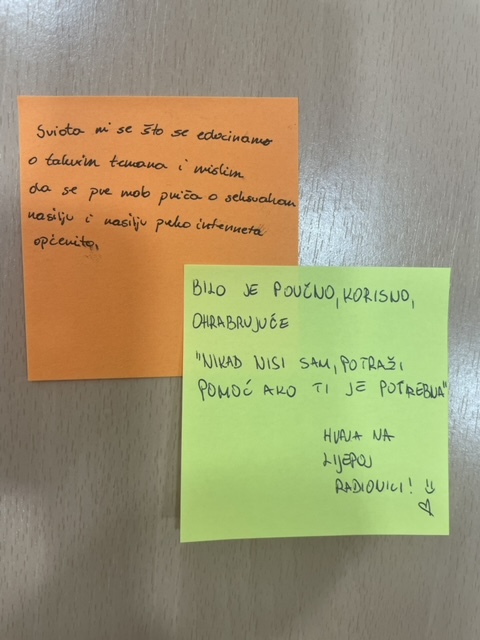 Sviđa mi se što se educiramo
o takvim temama i mislim
da se pre malo priča o seksualnom
nasilju i nasilju preko interneta
općenito.
BILO JE POUČNO, KORISNO,
OHRABRUJUĆE
"NIKAD NISI SAM, POTRAŽI
POMOĆ AKO TI JE POTREBNA"
HVALA NA
LIJEPOJ
RADIONICI! :)